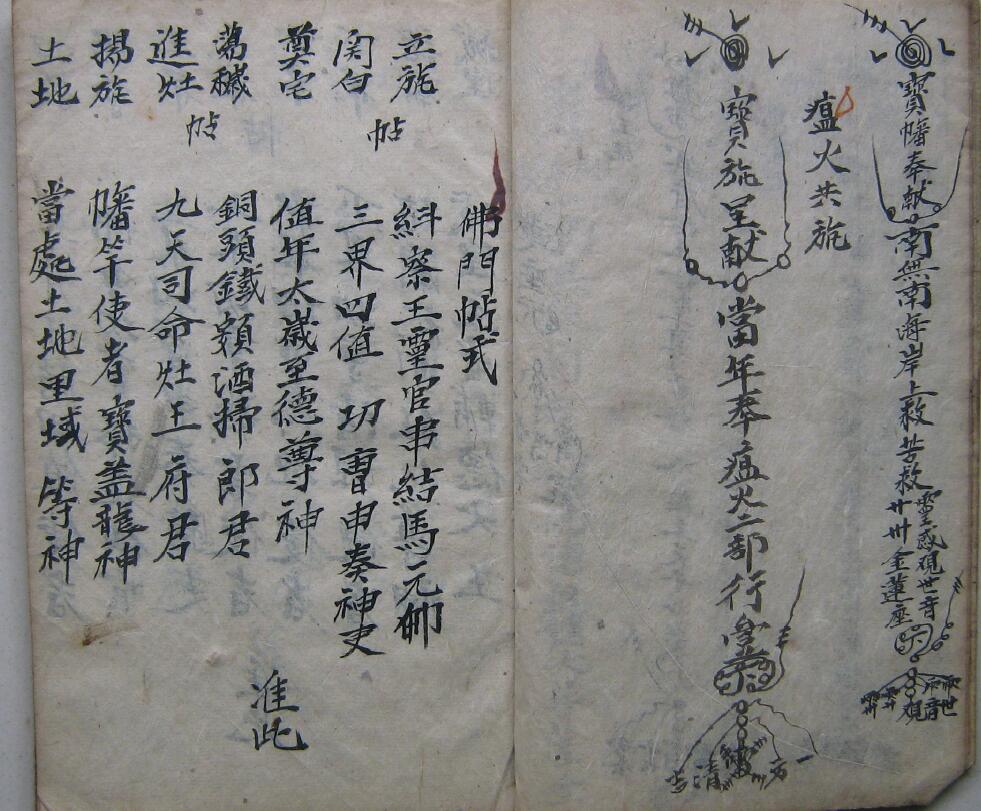 寶幡奉献
南無南海岸上救苦救
靈感觀世音
廿卅金蓮座
瘟火共旎
寶旎呈献
當年奉瘟火二部行
清
佛門帖式
立旎
糾察王靈官串結馬元帅
関白
帖
三界四值 功曹申奏神吏
奠宅
值年太歲至德尊神
蕩穢
銅頭鐵額洒掃 郎君
進灶
帖
九天司命灶王 府君
揚旎
幡竿使者寶盖龍神
土地
當處土地里域 等神
准此